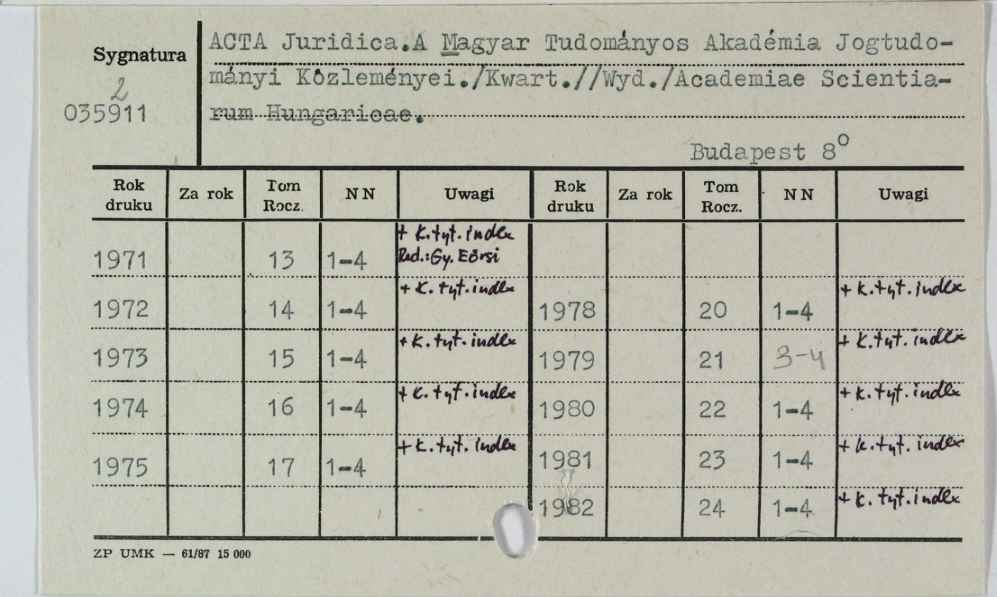 Sygnatura
2
035911
ACTA Juridica.A Magyar Tudományos Akadémia Jogtudo-
mányi Közleményei./Kwart.//Wyd./Academiae Scientia-
rum Hungaricae.
Budapest 8°
Rok druku Za rok Tom Rocz. NN Uwagi Rok druku Za rok Tom Rocz. NN Uwagi
1971 13 1-4 + k.tyt.index Red.:Gy. Eörsi
1972 14 1-4 + k.tyt.index 1978 20 1-4 + k.tyt.index
1973 15 1-4 + k.tyt.index 1979 21 3-4 + k.tyt.index
1974 16 1-4 + k.tyt.index 1980 22 1-4 + k.tyt.index
1975 17 1-4 + k.tyt.index 1981 23 1-4 + k.tyt.index
1982 24 1-4 + k.tyt.index
ZP UMK — 61/87 15 000